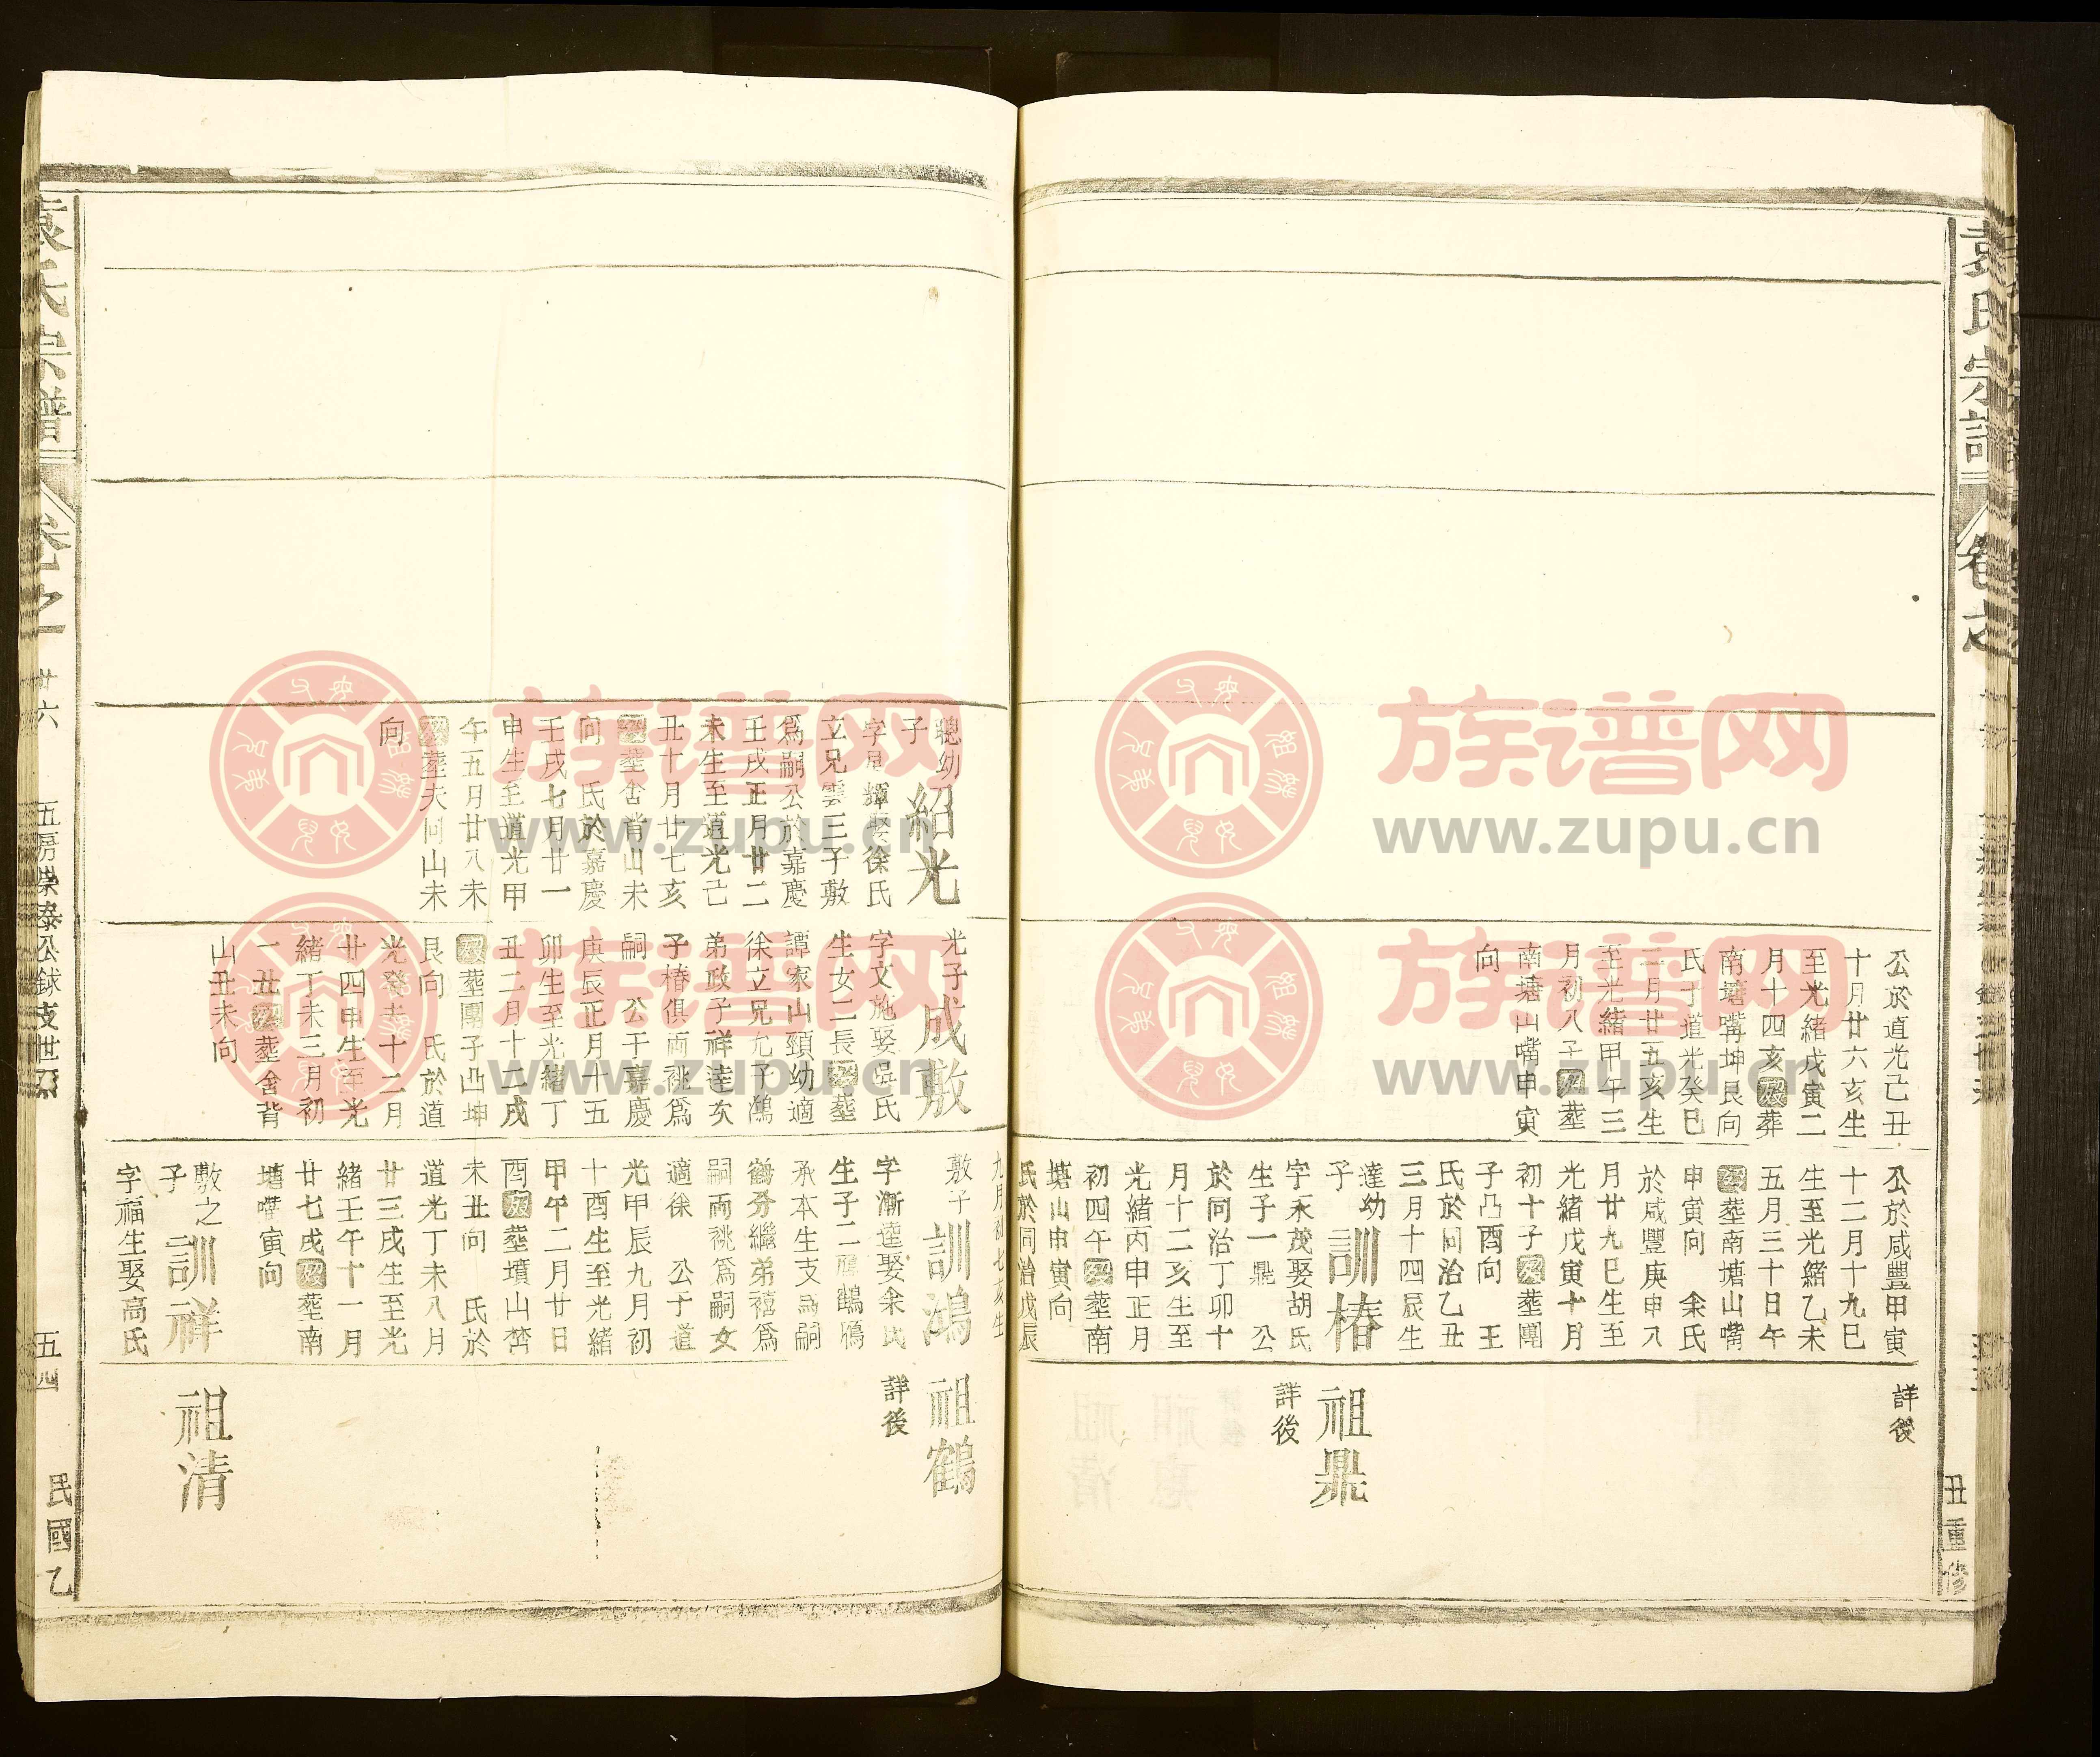 袁氏宗譜
卷之
丑重修
公於道光己丑
十月廿六亥生
至光緒戊寅二
月十四亥歿葬
南塘嘴坤艮向
氏于道光癸巳
二月廿五亥生
至光緒甲午三
月初八子歿葬
南塘山嘴申寅
向
公於咸豐甲寅
十二月十九巳
生至光緒乙未
五月三十日午
歿葬南塘山嘴
申寅向　余氏
於咸豐庚申八
月廿九巳生至
光緒戊寅十月
初十子歿葬團
子凸酉向　王
氏於同治乙丑
三月十四辰生
達幼子
訓椿
字禾茂娶胡氏
生子一鼎　公
於同治丁卯十
月十二亥生至
光緒丙申正月
初四午歿葬南
塘山申寅向
氏於同治戊辰
詳後
祖鼎
詳後
九月初七亥生
聰幼子
紹光
輝娶徐氏
立兄雲三子敷
爲嗣公於嘉慶
壬戌正月廿二
未生至道光己
丑十月廿七亥
歿葬舍背山未
向　氏於嘉慶
壬戌七月廿一
申生至道光甲
午五月廿八未
歿葬夫同山未
向
光子
成敷
字文施娶吳氏
生女二長歿葬
譚家山頸幼適
徐立兄九子鴻
弟政子祥達次
子椿俱兩祧爲
嗣　公于嘉慶
庚辰正月十五
卯生至光緒丁
丑二月十二戌
歿葬團子凸坤
艮向　氏於道
光癸未十二月
廿四申生至光
緒丁未三月初
一丑歿葬舍背
山丑未向
敷子
訓鴻
字漸逵娶余氏
生子二
承本生支爲嗣
鶴分繼弟禧爲
嗣兩祧爲嗣女
適徐　公于道
光甲辰九月初
十酉生至光緒
甲午二月廿日
酉歿葬墳山
未丑向　氏於
道光丁未八月
廿三戌生至光
緒壬午十一月
廿七戌歿葬南
塘嘴寅向
敷之子
訓祥
字福生娶高氏
祖鶴
詳後
祖清
袁氏宗譜
卷之一
廿六
五房榮泰公錸支世系
五四
民國乙
族谱网
www.zupu.cn
族谱网
www.zupu.cn
族谱网
www.zupu.cn
族谱网
www.zupu.cn